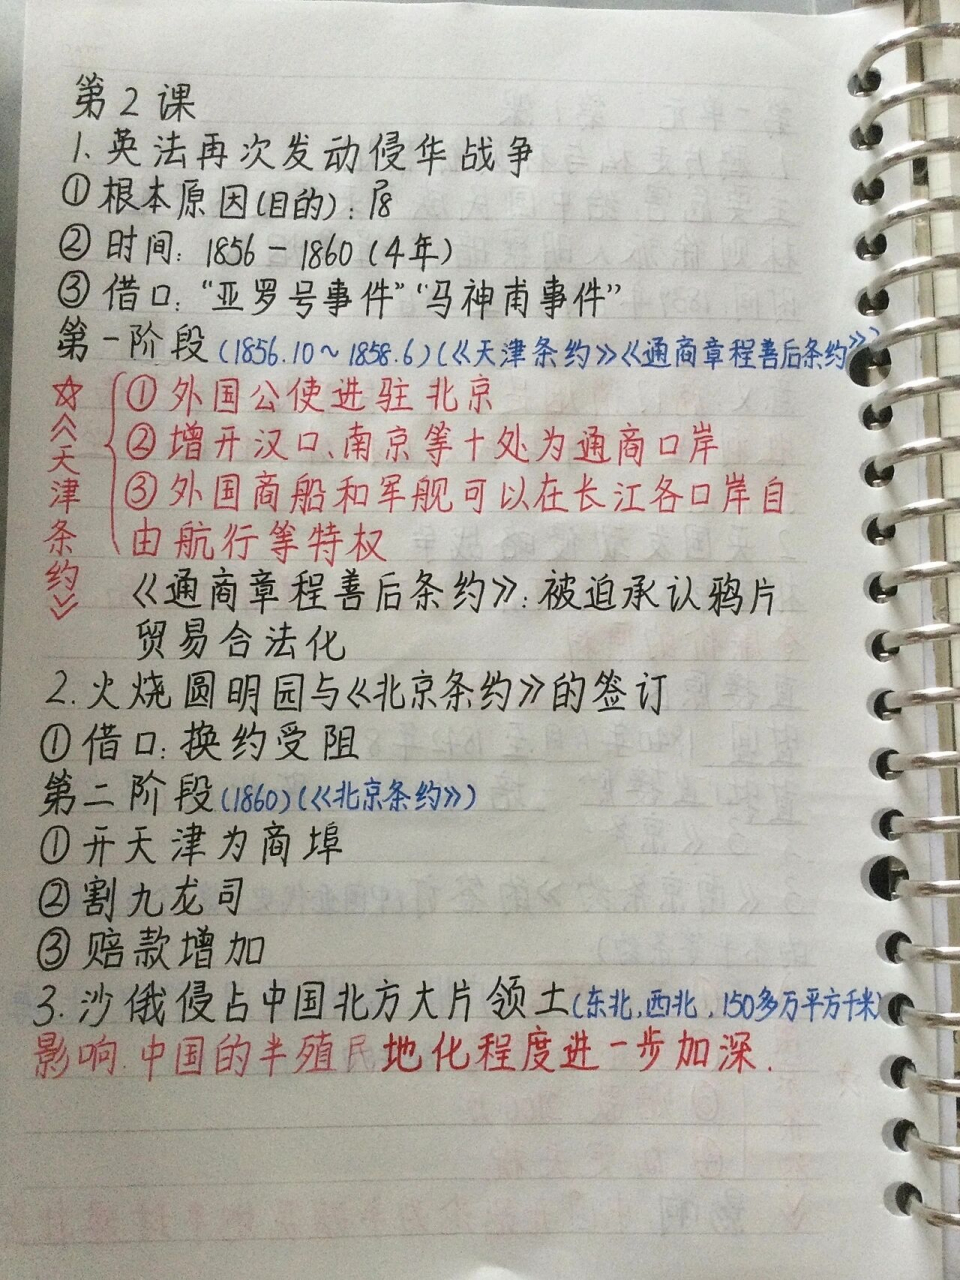 第2课
1.英法再次发动侵华战争
①根本原因(目的):
②时间:1856-1860(4年)
③借口:“亚罗号事件”“马神甫事件”
第一阶段(1856.10~1858.6)(《天津条约》《通商章程善后条约》)
☆《天津条约》
①外国公使进驻北京
②增开汉口、南京等十处为通商口岸
③外国商船和军舰可以在长江各口岸自
由航行等特权
《通商章程善后条约》:被迫承认鸦片
贸易合法化
2.火烧圆明园与《北京条约》的签订
①借口:换约受阻
第二阶段(1860)(《北京条约》)
①开天津为商埠
②割九龙司
③赔款增加
3.沙俄侵占中国北方大片领土(东北,西北,150多万平方千米)
影响.中国的半殖民地化程度进一步加深.